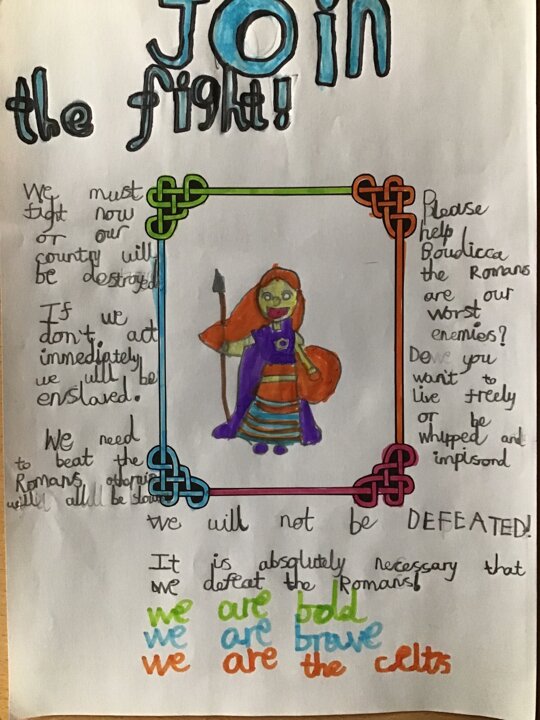 Join
the fight!
We must
fight now
or our
country will
be destroyed
If we
don't act
immediately
we will be
enslaved.
We need
to beat the
Romans
all be
Please
help
Boudicca
the Romans
are our
worst
enemies?
Do you
want to
live freely
or be
whipped and
impisond
We will not be DEFEATED!
It is absolutely necessary that
we defeat the Romans!
we are bold
we are brave
we are the celts